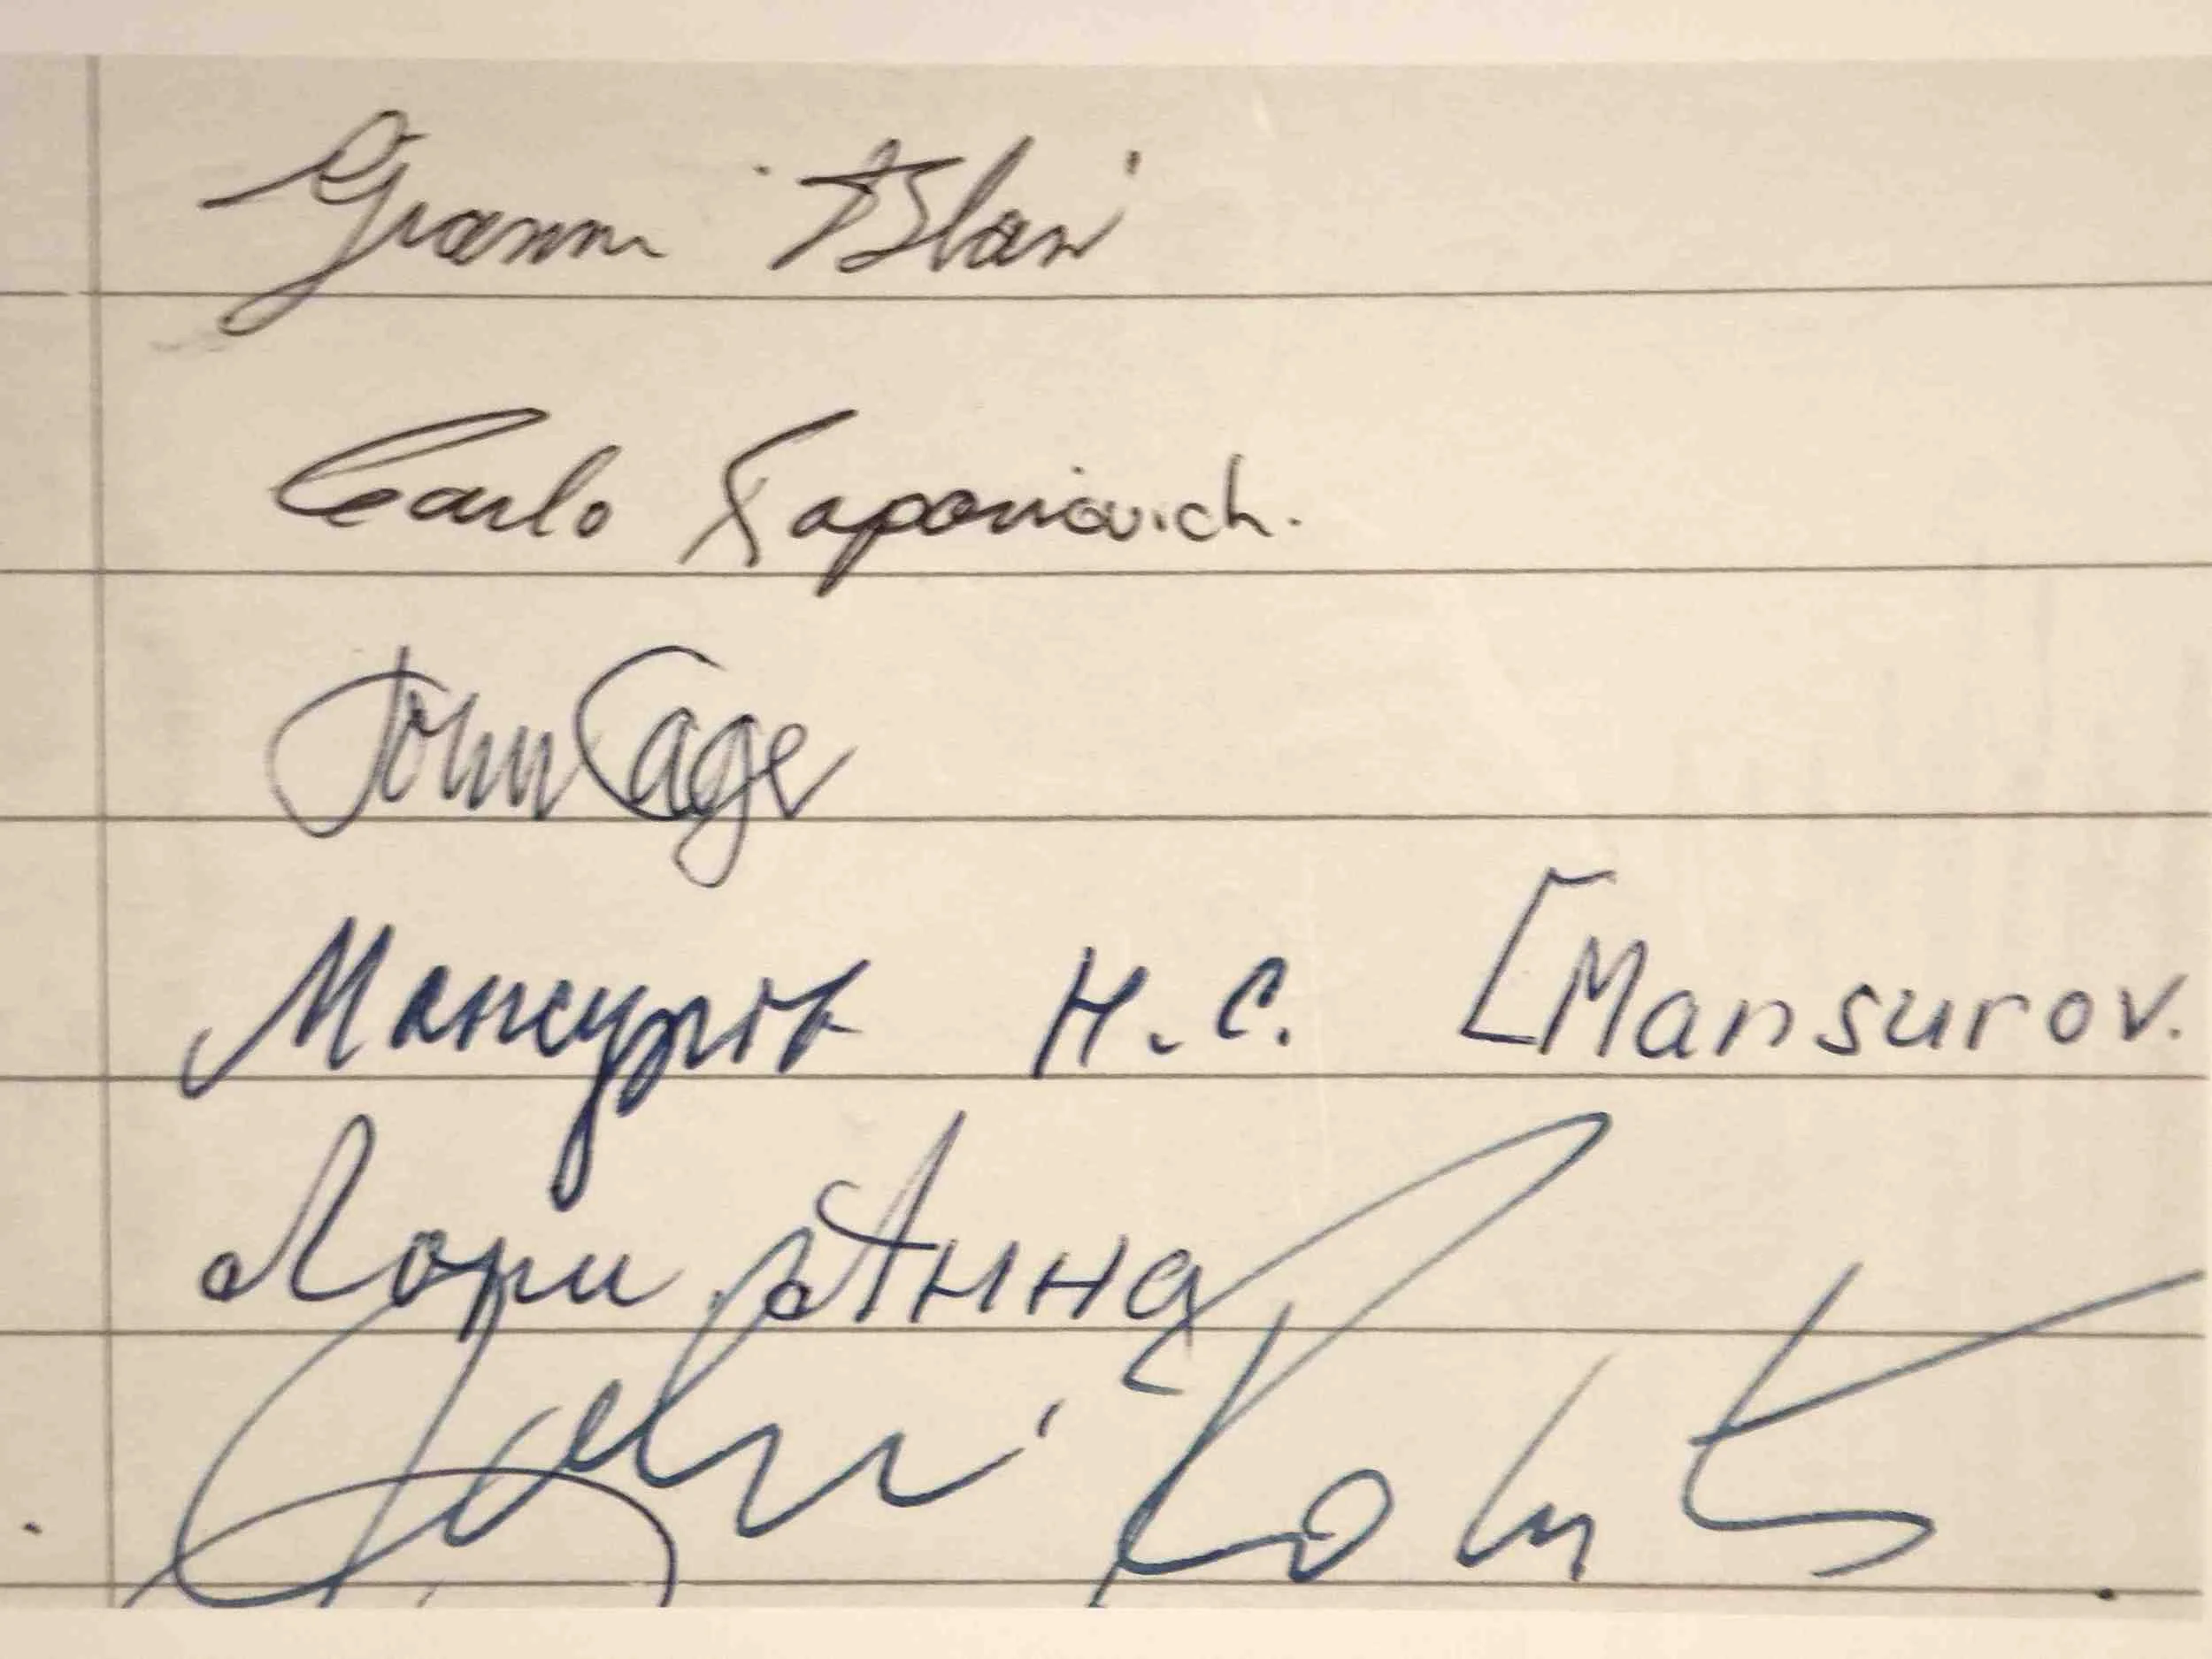 Gianni Blasi
Carlo Taponiovich.
John Cage
Мансуров Н.С. [Mansurov.
Лори Анна